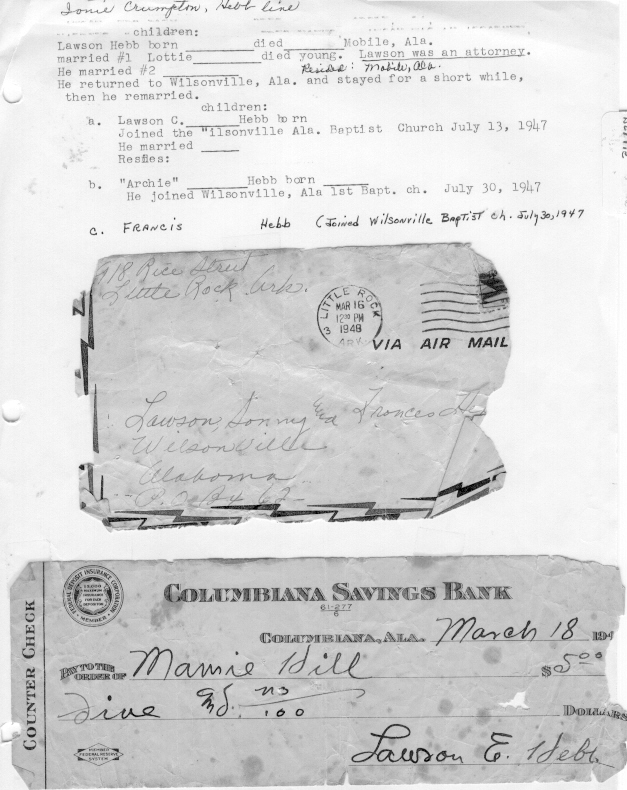 Ionie Crumpton, Hebb line
children:
Lawson Hebb born ________ died ________ Mobile, Ala.
married #1 Lottie ________ died young. Lawson was an attorney.
He married #2 ________ Resided: Mobile, Ala.
He returned to Wilsonville, Ala. and stayed for a short while,
then he remarried.
children:
a. Lawson C. ________ Hebb born
Joined the "ilsonville Ala. Baptist Church July 13, 1947
He married _____
Resfies:
b. "Archie" ________ Hebb born ______
He joined Wilsonville, Ala 1st Bapt. ch. July 30, 1947
c. FRANCIS Hebb (Joined Wilsonville Baptist ch. July 30, 1947
918 Rice Street
Little Rock, Ark.
LITTLE ROCK
MAR 16
12 30 PM
1948
3 ARK.
VIA AIR MAIL
Lawson, Sonny and Frances
Wilsonville
Alabama
P.O. Bx 62
FEDERAL DEPOSIT INSURANCE CORPORATION
MEMBER
COLUMBIANA SAVINGS BANK
61-277
6
COLUMBIANA, ALA. March 18 194
COUNTER CHECK
PAY TO THE ORDER OF Mamie Hill $5.00
five and no/100 DOLLARS
MEMBER
FEDERAL RESERVE
SYSTEM
Lawson E. Hebb